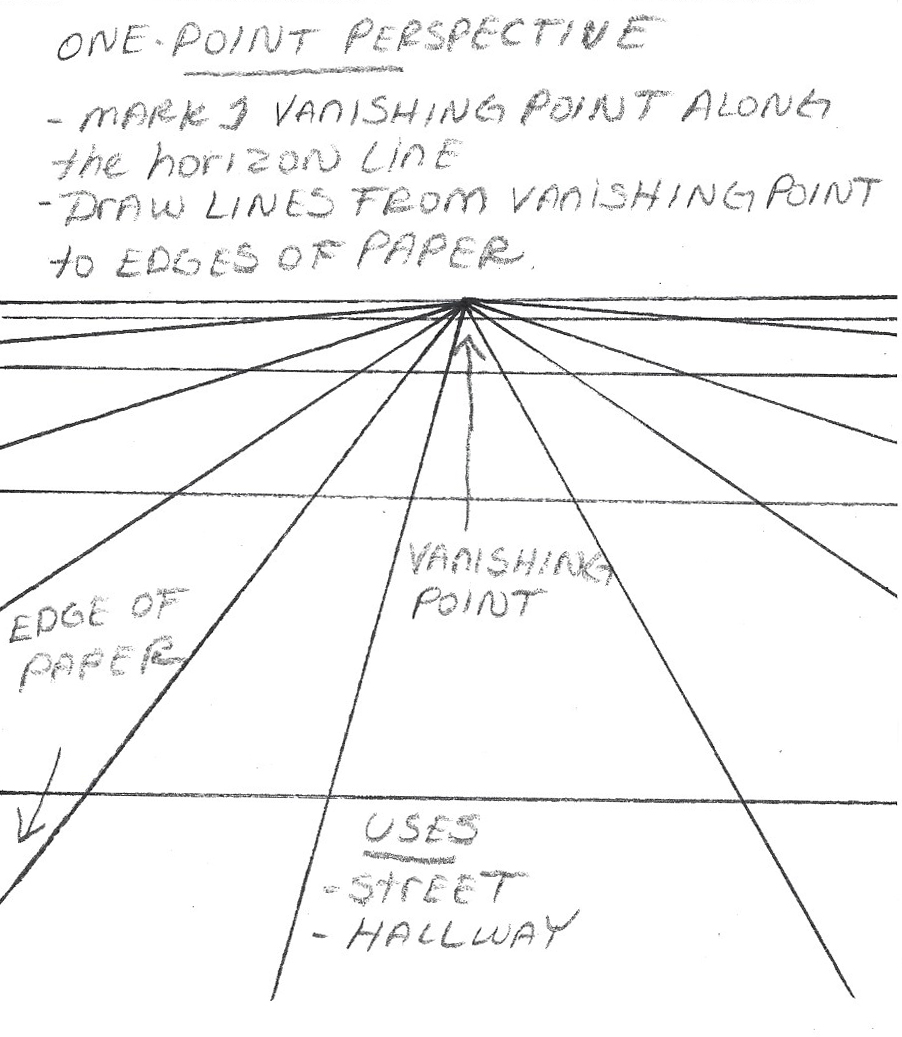 ONE-POINT PERSPECTIVE
- MARK 1 VANISHING POINT ALONG
the horizon LinE
- DrAW LINES FROM VANISHING POINT
to EDGES OF PAPER.
VANISHING
POINT
EDGE OF
PAPER
USES
- StrEET
- HALLWAY